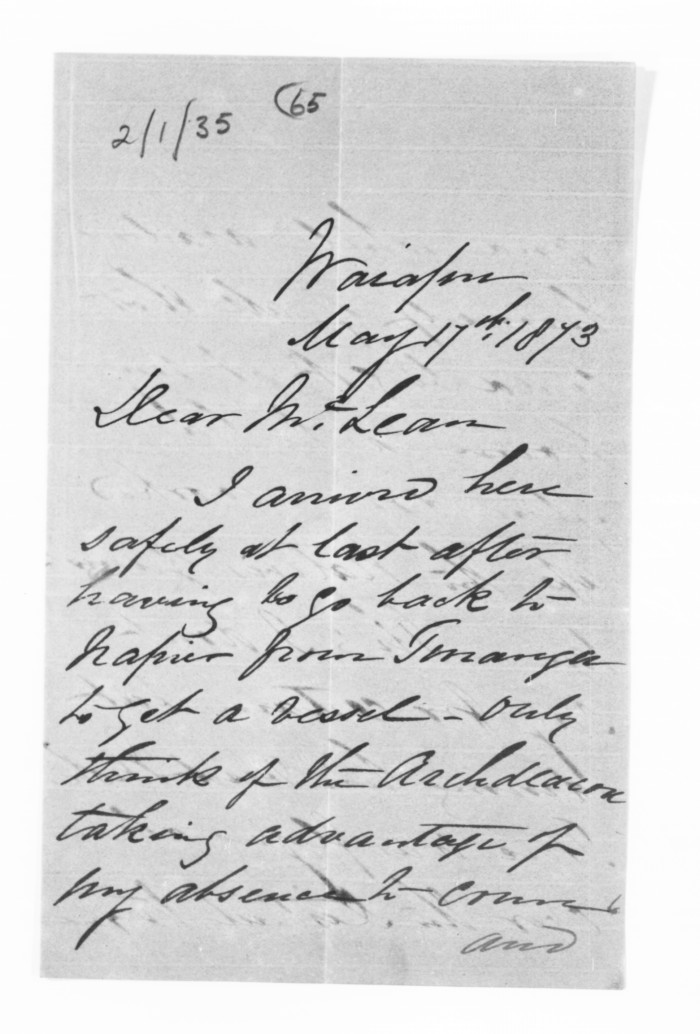 2/1/35
65
Waiapu
May 17th. 1873
Dear Mr. Lean
I arrived here
safely at last after
having to go back to
Napier from Turanga
to get a vessel - Only
think of the Archdeacon
taking advantage of
my absence to come
and